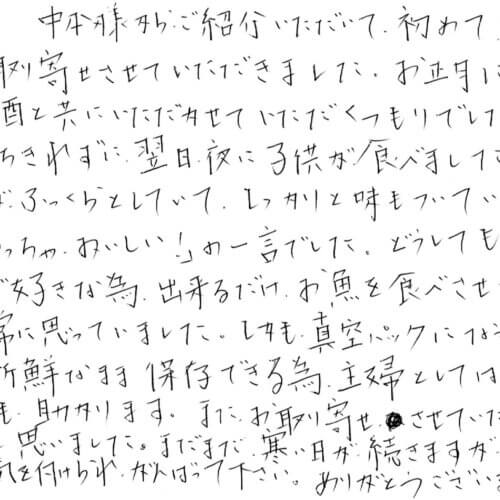 中本様からご紹介いただいて、初めて
取り寄せさせていただきました。お正月に
酒と共にいただかせていただくつもりでした
ちきれずに、翌日、夜に子供が食べました
ふっくらとしていて、しっかりと味もついてい
っちゃ、おいしい!」の一言でした。どうしても
好きな為、出来るだけ、お魚を食べさせ
常に思っていました。しかも、真空パックになっ
新鮮なまま保存できる為、主婦としては
も、助かります。また、お取り寄せ、させていた
思いました。まだまだ、寒い日が続きますが
気を付けられ、がんばって下さい。ありがとうござい